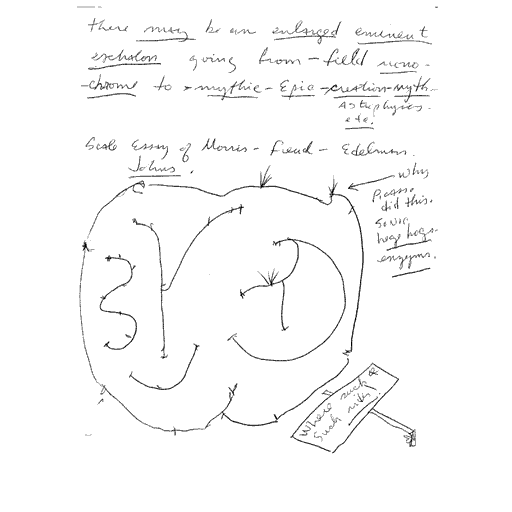 there may be an enlarged eminent
eschalon going from - field mono-
-chrome to - mythic - Epic - creation - myth -
Astrophysics -
etc!
Scale Essay of Morris - Freud - Edelman.
Johns.
why
Picasso
did this.
Sonic
hogs -
enzyms.
Where such &
Such